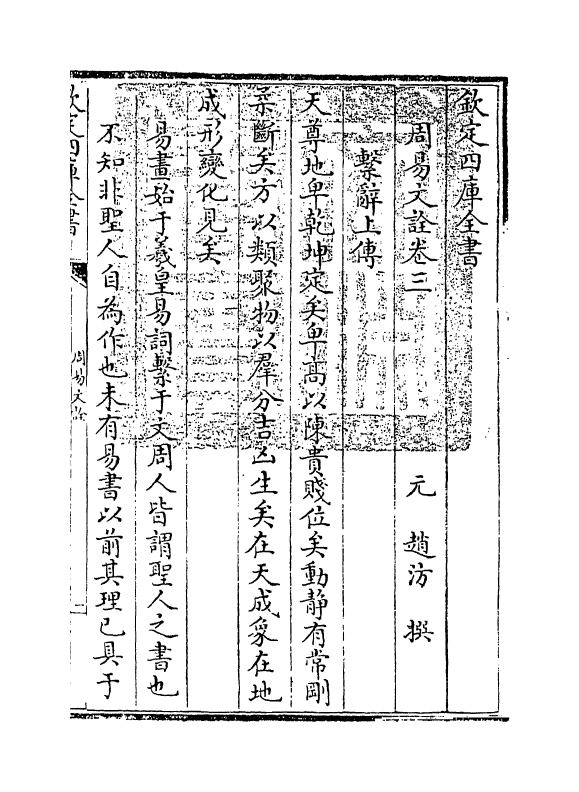 欽定四庫全書
周易文詮卷三
元 趙汸 撰
繫辭上傳
天尊地卑乾坤定矣卑髙以陳貴賤位矣動靜有常剛
柔斷矣方以類聚物以羣分吉凶生矣在天成象在地
成形變化見矣
易畫始于羲皇易詞繫于文周人皆謂聖人之書也
不知非聖人自為作也未有易書以前其理已具于
欽定四庫全書
周易文詮
一